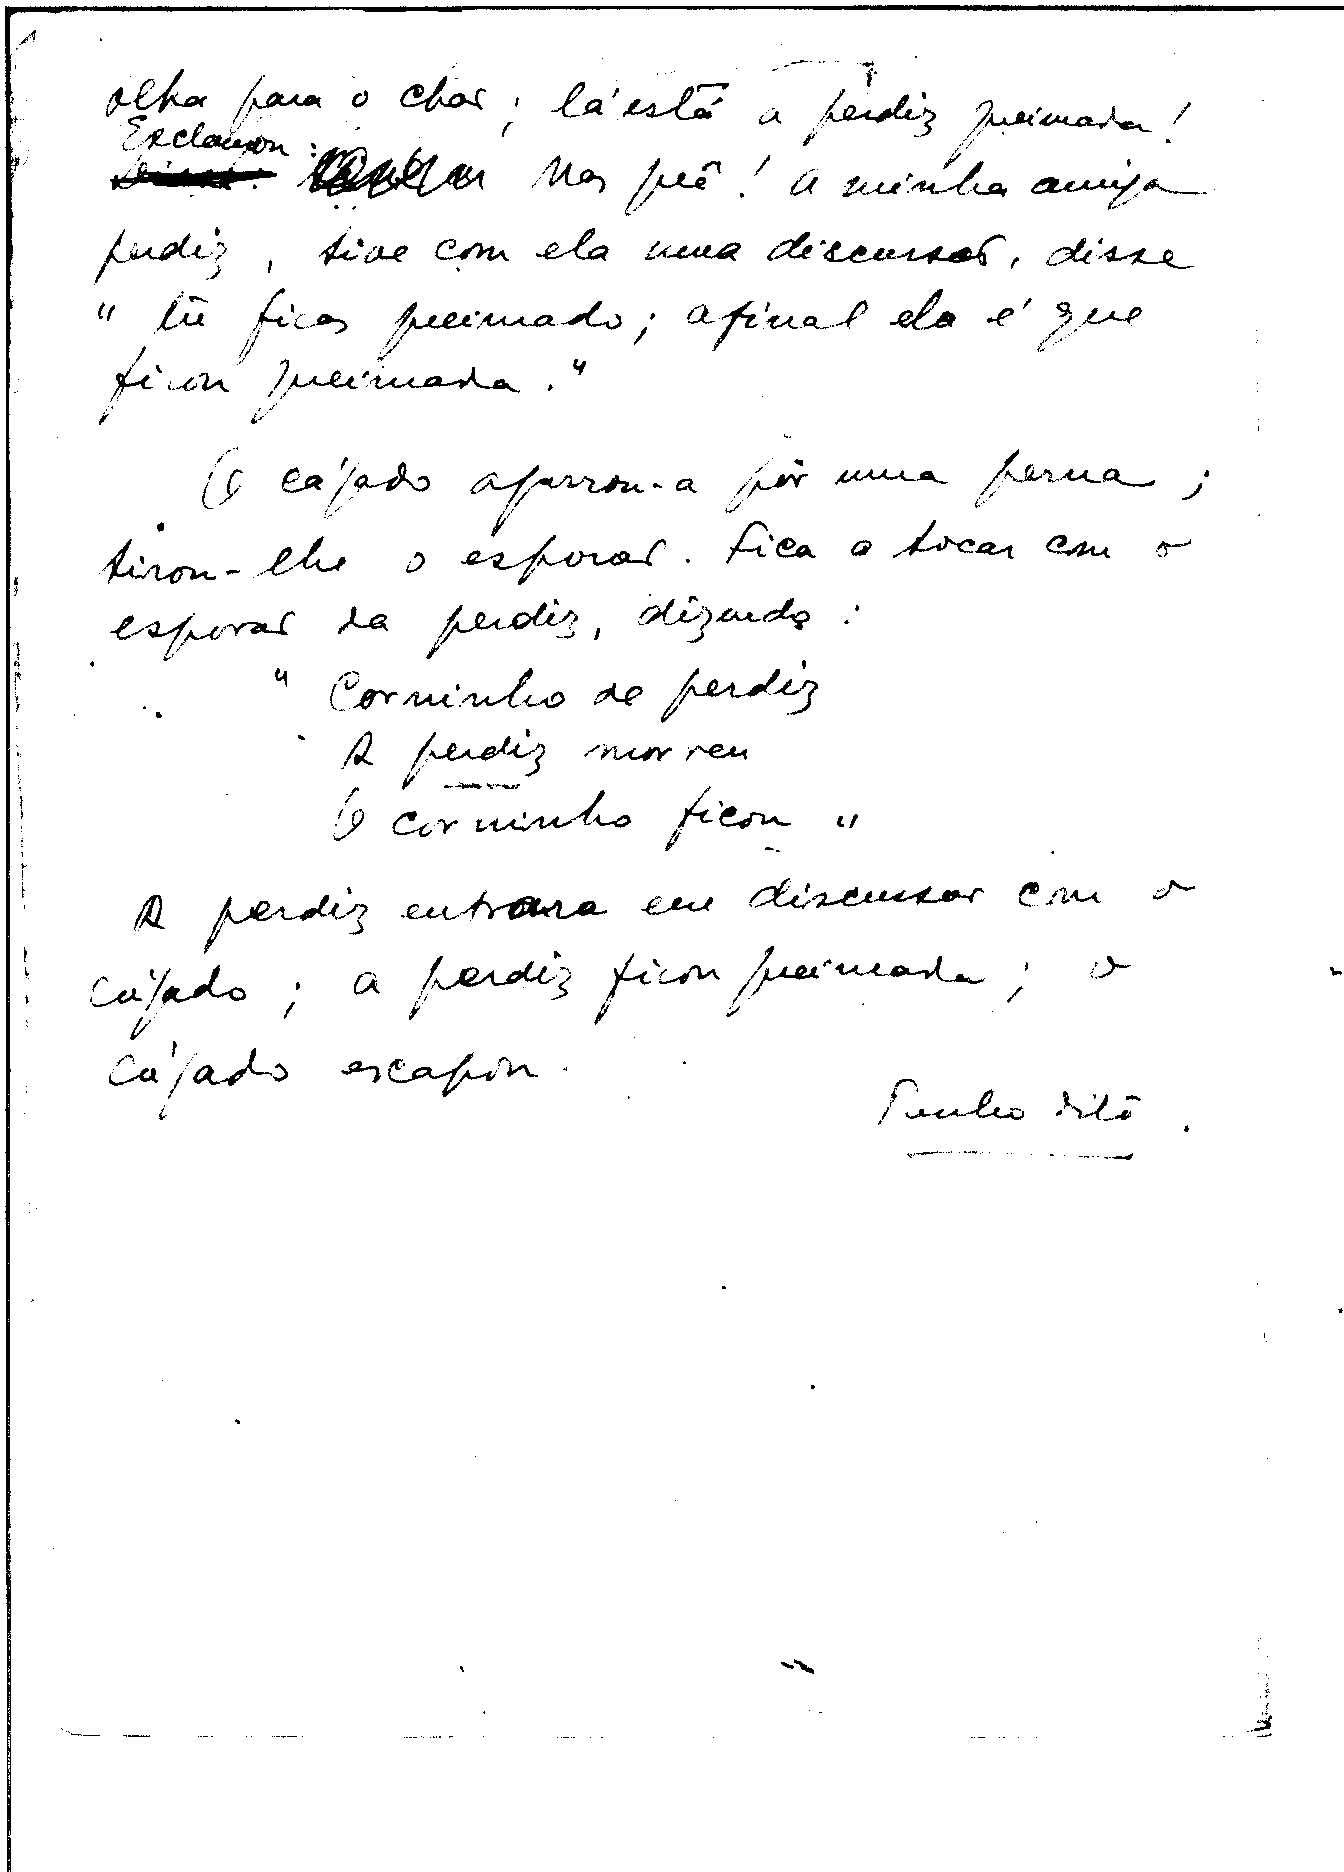 olha para o chão; lá está a perdiz queimada!
Exclamou:
Mas quê! A minha amiga
perdiz, tive com ela uma discussão, disse
" tu ficas queimado; afinal ela é que
ficou queimada."
O cágado agarrou-a por uma perna;
tirou-lhe o esporão. Fica a tocar com o
esporão da perdiz, dizendo:
" Corninho de perdiz
A perdiz morreu
O corninho ficou "
A perdiz entrara em discussão com o
cágado; a perdiz ficou queimada; o
cágado escapou.
Tenho dito.